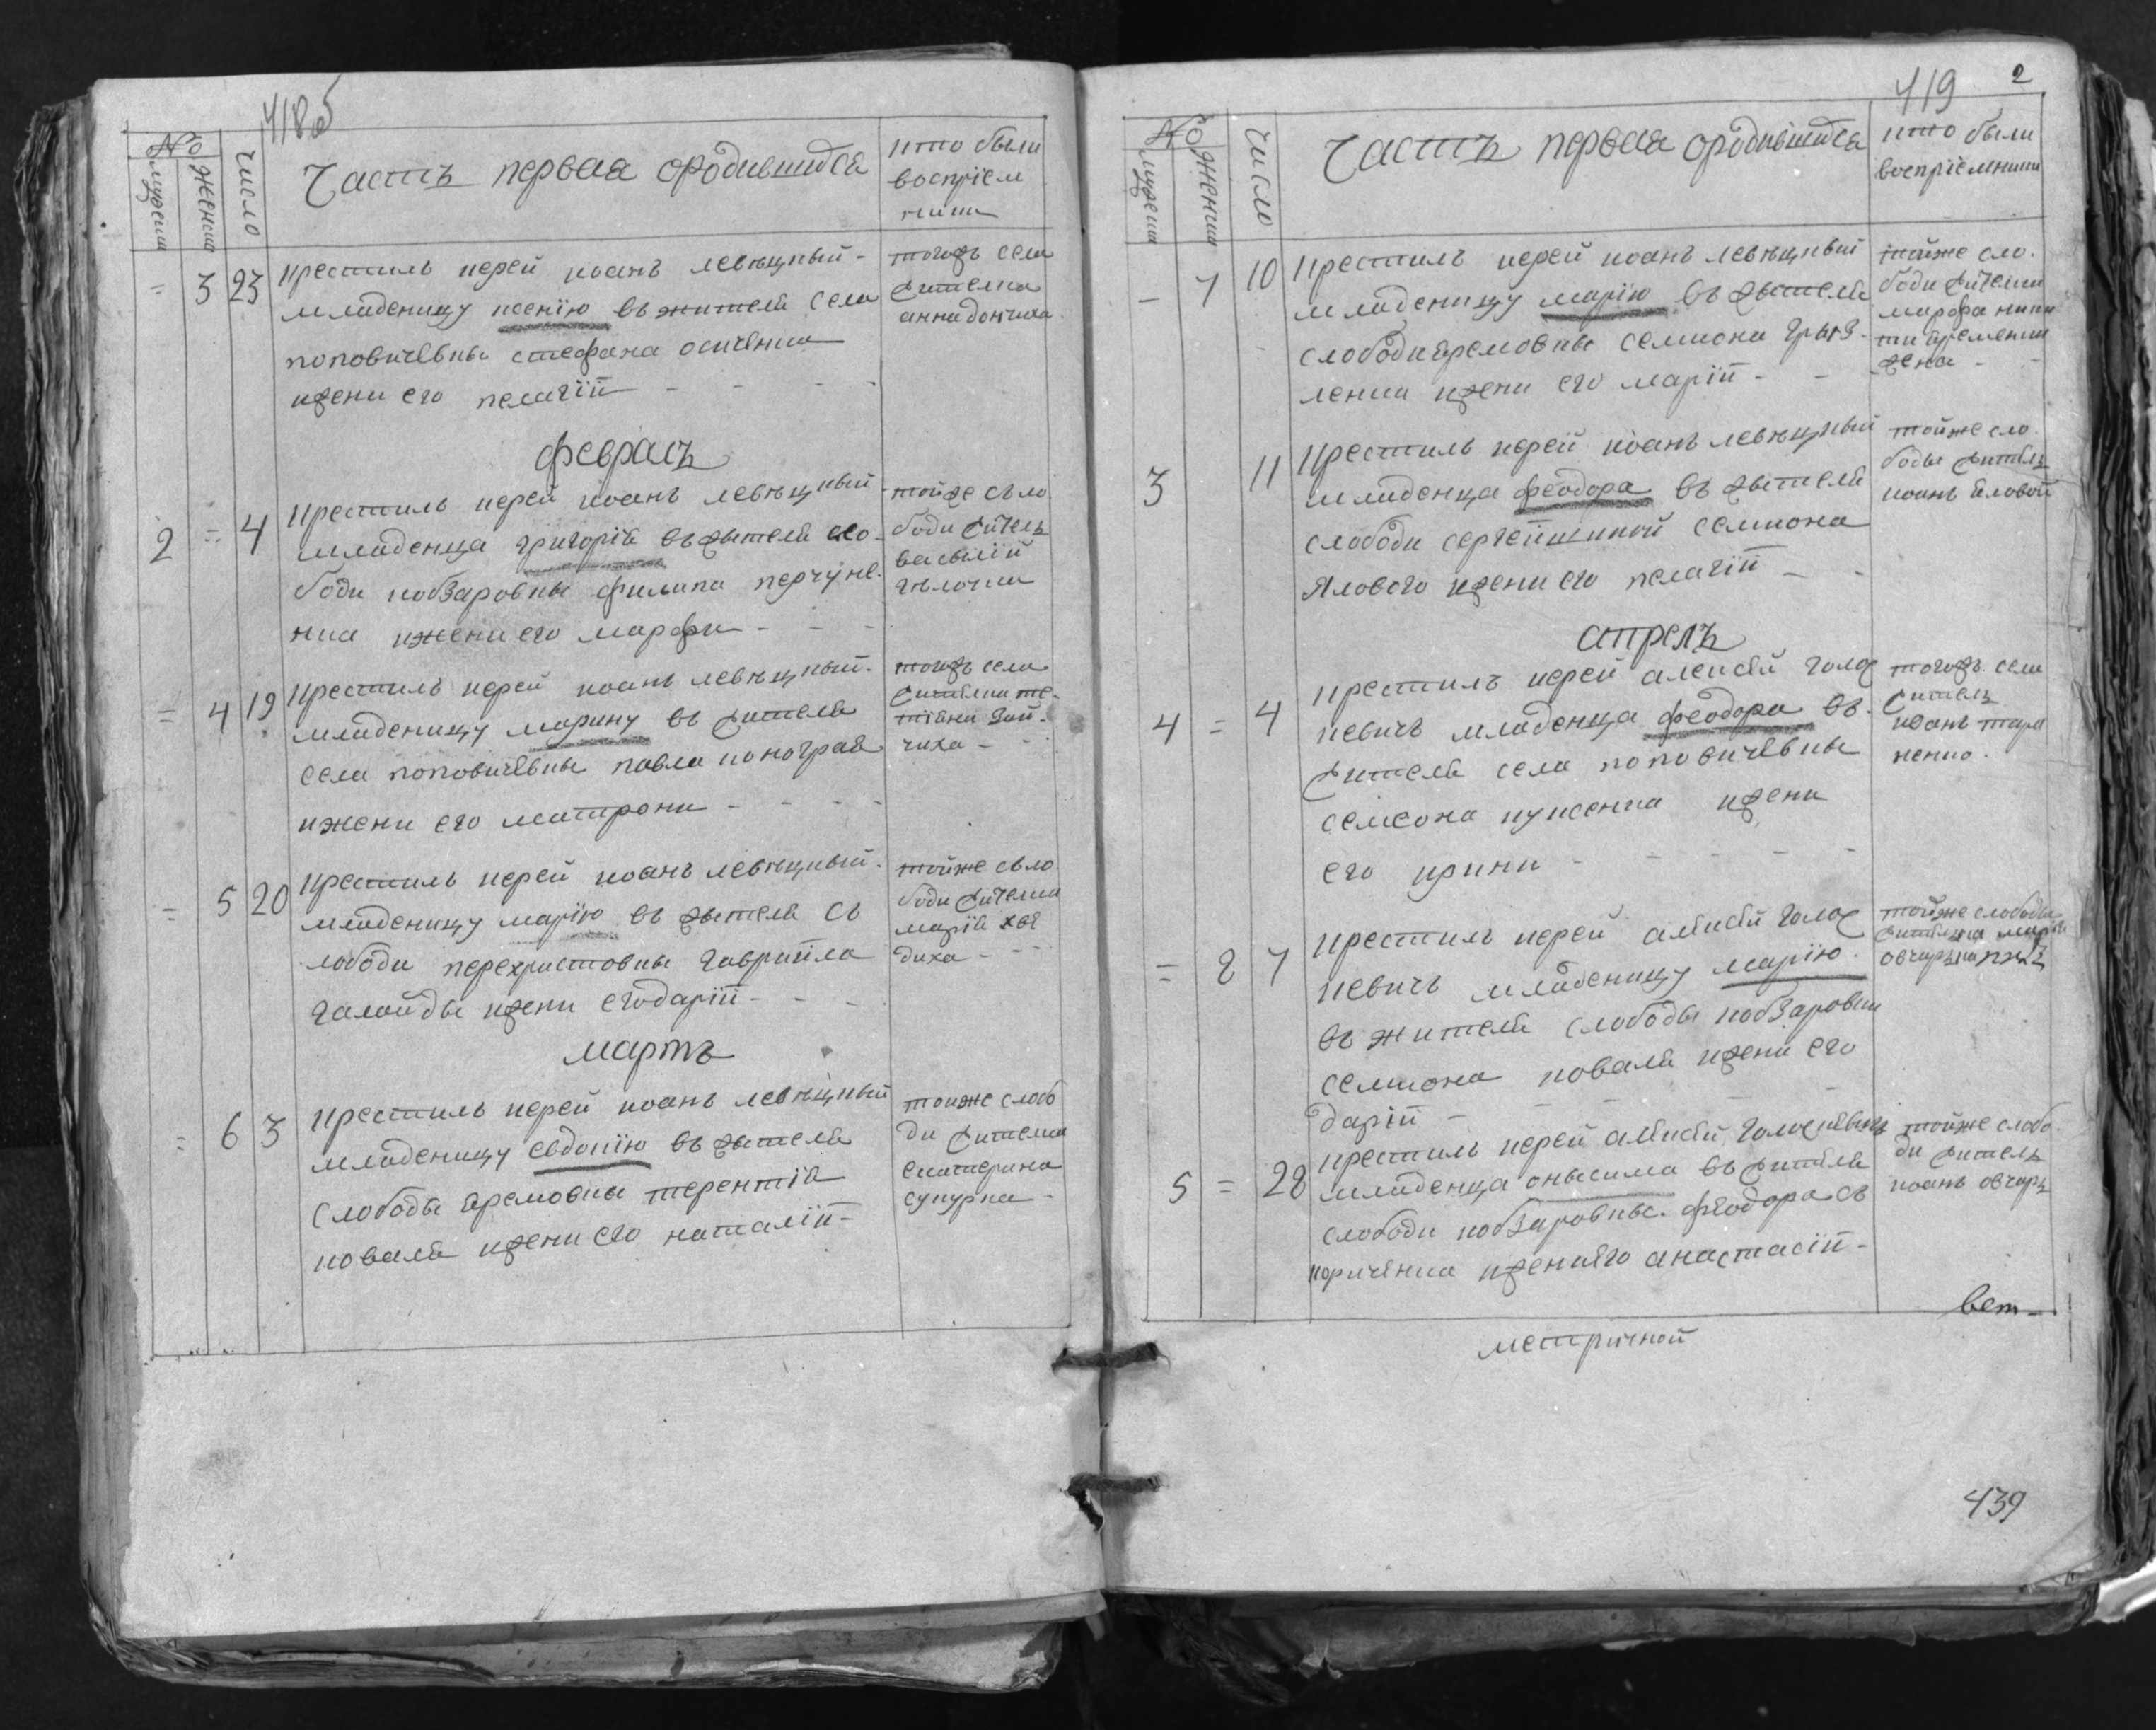 418об
№
мужеска
женска
число
Часть первая ородившихся
кто были
воспрiем
ники
3 23 Крестилъ иерей иоанъ левѣцкый
младеницу ксенiю въ жителя села
поповичевки стефана осиченка
ижени его пелагiй
тогожъ села
жителка
анна дончиха
февралъ
2 = 4 Крестилъ иерей иоанъ левѣцкый
младенца григорiя въ жителя сло
боди кобзаровки филипа перчуне
нка ижени его марфи
тойже съло
боди житель
василiй
4 19 Крестилъ иерей иоанъ левѣцкый
младеницу марину въ жителя
села поповичевки павла конограя
ижени его матрони
тогожъ села
жителка те
тiяна зай
чиха
5 20 Крестилъ иерей иоанъ левѣцкый
младеницу марiю въ жителя съ
лободи перехристовки гавриила
галайды ижени его дарiй
тойже съло
боди жителка
марiя хве
диха
мартъ
= 6 3 Крестилъ иерей иоанъ левѣцкый
младеницу евдокiю въ жителя
слободы яремовки терентiя
коваля ижени его наталiй
тоиже слобо
ди жителка
екатерина
сукурка
419 2
№
мужеска
женска
число
Часть первая ородившихся
кто были
воспрiемники
7 10 Крестилъ иерей иоанъ левѣцкый
младеницу марiю въ жителя
слободи яремовки семиона
ленка ижени его марiй
тойже сло
боди жителка
марфа ники
ти яременка
жена
3 11 Крестилъ иерей иоанъ левѣцкый
младенца феодора въ жителя
слободи сергейшиной семиона
Ялового ижени его пелагiй
тойже сло
боды житель
иоанъ яловой
апрелъ
4 = 4 Крестилъ иерей алексѣй голос
кевичъ младенца феодора въ
жителя села поповичевки
семеона куксенка ижени
его ирини
тогожъ села
житель
иванъ тара
ненко
= 8 7 Крестилъ иерей алексѣй голос
кевичъ младеницу марiю
въ жителя слободы кобзаровки
семиона коваля ижени его
дарiй
тойже слободы
жителка марiя
5 = 28 Крестилъ иерей алексѣй голоскевичъ
младенца онысима въ жителя
слободи кобзаровки феодора съ
кориченка ижени его анастасiй
тойже слобо
ди житель
иоанъ овчаръ
метричной
439